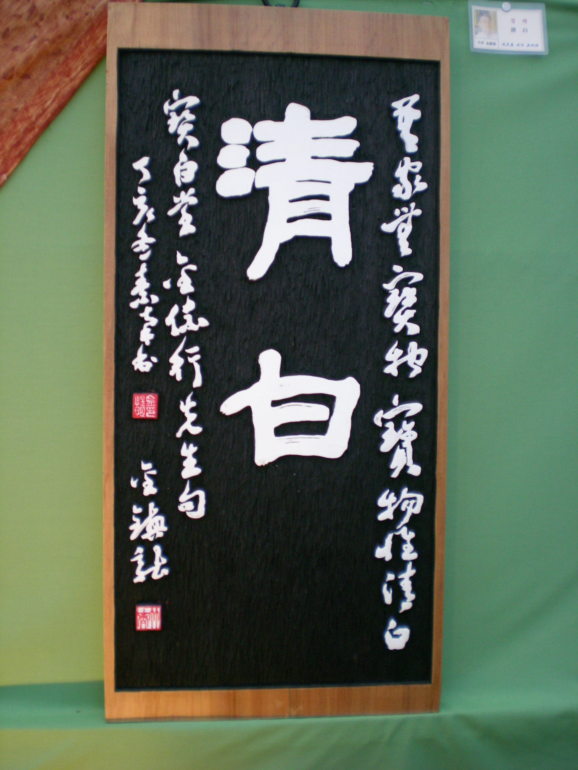 吾家無寶物寶物惟清白
清白
寶白堂 金係行先生句
丁亥
金鎭